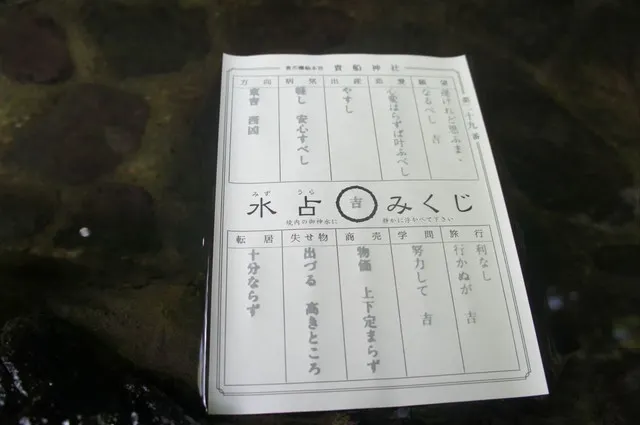 貴船神社
第二十九番
願望
遅けれど思ふまゝ
なるべし 吉
恋愛
心変はらずば叶ふべし
出産
やすし
病気
軽し 安心すべし
方向
東吉 西凶
みず うら
水占 吉 みくじ
境内の御神水に 静かに浮かべて下さい
旅行
利なし
行かぬが 吉
学問
努力して 吉
商売
物価 上下定まらず
失せ物
出づる 高きところ
転居
十分ならず